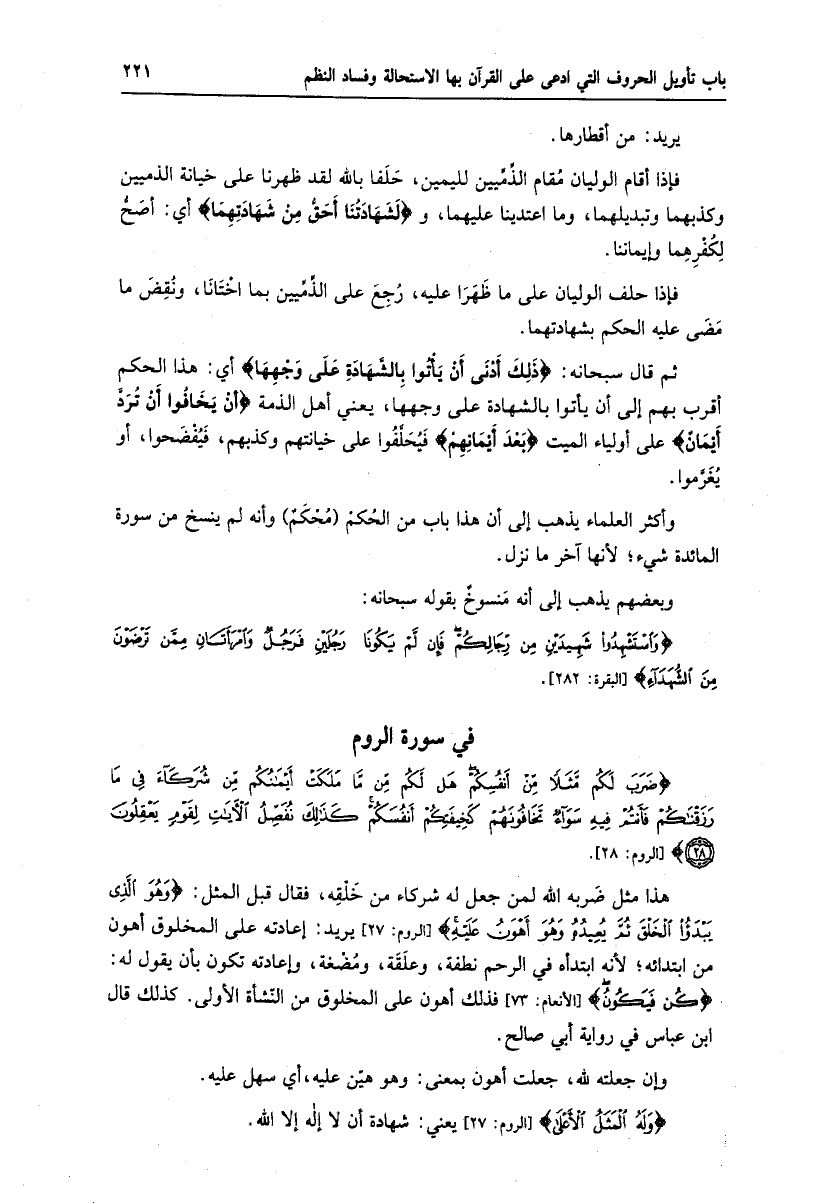 باب تأويل الحروف التي ادعى على القرآن بها الاستحالة وفساد النظم ٢٢١
يريد: من أقطارها.
فإذا أقام الوليان مُقام الذِّمِّيين لليمين، حَلَفا بالله لقد ظهرنا على خيانة الذميين
وكذبهما وتبديلهما، وما اعتدينا عليهما، و ﴿لَشَهَادَتُنَا أَحَقُّ مِنْ شَهَادَتِهِمَا﴾ أي: أصَحُّ
لِكُفْرِهِما وإيماننا.
فإذا حلف الوليان على ما ظَهَرَا عليه، رُجِعَ على الذِّمِّيين بما اخْتَانَا، ونُقِضَ ما
مَضَى عليه الحكم بشهادتهما.
ثم قال سبحانه: ﴿ذَلِكَ أَدْنَى أَنْ يَأْتُوا بِالشَّهَادَةِ عَلَى وَجْهِهَا﴾ أي: هذا الحكم
أقرب بهم إلى أن يأتوا بالشهادة على وجهها، يعني أهل الذمة ﴿أَنْ يَخَافُوا أَنْ تُرَدَّ
أَيْمَانٌ﴾ على أولياء الميت ﴿بَعْدَ أَيْمَانِهِمْ﴾ فَيُحَلَّفُوا على خيانتهم وكذبهم، فَيُفْضَحوا، أو
يُغَرَّموا.
وأكثر العلماء يذهب إلى أن هذا باب من الحُكمْ (مُحْكَمٌ) وأنه لم ينسخ من سورة
المائدة شيء؛ لأنها آخر ما نزل.
وبعضهم يذهب إلى أنه مَنسوخٌ بقوله سبحانه:
﴿وَٱسْتَشْهِدُواْ شَهِيدَيْنِ مِن رِّجَالِكُمْۖ فَإِن لَّمْ يَكُونَا رَجُلَيْنِ فَرَجُلٌ وَٱمْرَأَتَانِ مِمَّن تَرْضَوْنَ
مِنَ ٱلشُّهَدَآءِ﴾ [البقرة: ٢٨٢].
في سورة الروم
﴿ضَرَبَ لَكُم مَّثَلًا مِّنْ أَنفُسِكُمْۖ هَل لَّكُم مِّن مَّا مَلَكَتْ أَيْمَٰنُكُم مِّن شُرَكَآءَ فِى مَا
رَزَقْنَٰكُمْ فَأَنتُمْ فِيهِ سَوَآءٌ تَخَافُونَهُمْ كَخِيفَتِكُمْ أَنفُسَكُمْۚ كَذَٰلِكَ نُفَصِّلُ ٱلْآيَٰتِ لِقَوْمٍ يَعْقِلُونَ
٢٨﴾ [الروم: ٢٨].
هذا مثل ضَربه الله لمن جعل له شركاء من خَلْقِه، فقال قبل المثل: ﴿وَهُوَ ٱلَّذِى
يَبْدَؤُاْ ٱلْخَلْقَ ثُمَّ يُعِيدُهُۥ وَهُوَ أَهْوَنُ عَلَيْهِۚ﴾ [الروم: ٢٧] يريد: إعادته على المخلوق أهون
من ابتدائه؛ لأنه ابتدأه في الرحم نطفة، وعلَقَة، ومُضْغة، وإعادته تكون بأن يقول له:
﴿كُن فَيَكُونُۖ﴾ [الأنعام: ٧٣] فذلك أهون على المخلوق من النّشأة الأولى. كذلك قال
ابن عباس في رواية أبي صالح.
وإن جعلته لله، جعلت أهون بمعنى: وهو هيّن عليه،أي سهل عليه.
﴿وَلَهُ ٱلْمَثَلُ ٱلْأَعْلَىٰ﴾ [الروم: ٢٧] يعني: شهادة أن لا إلٰه إلا الله.